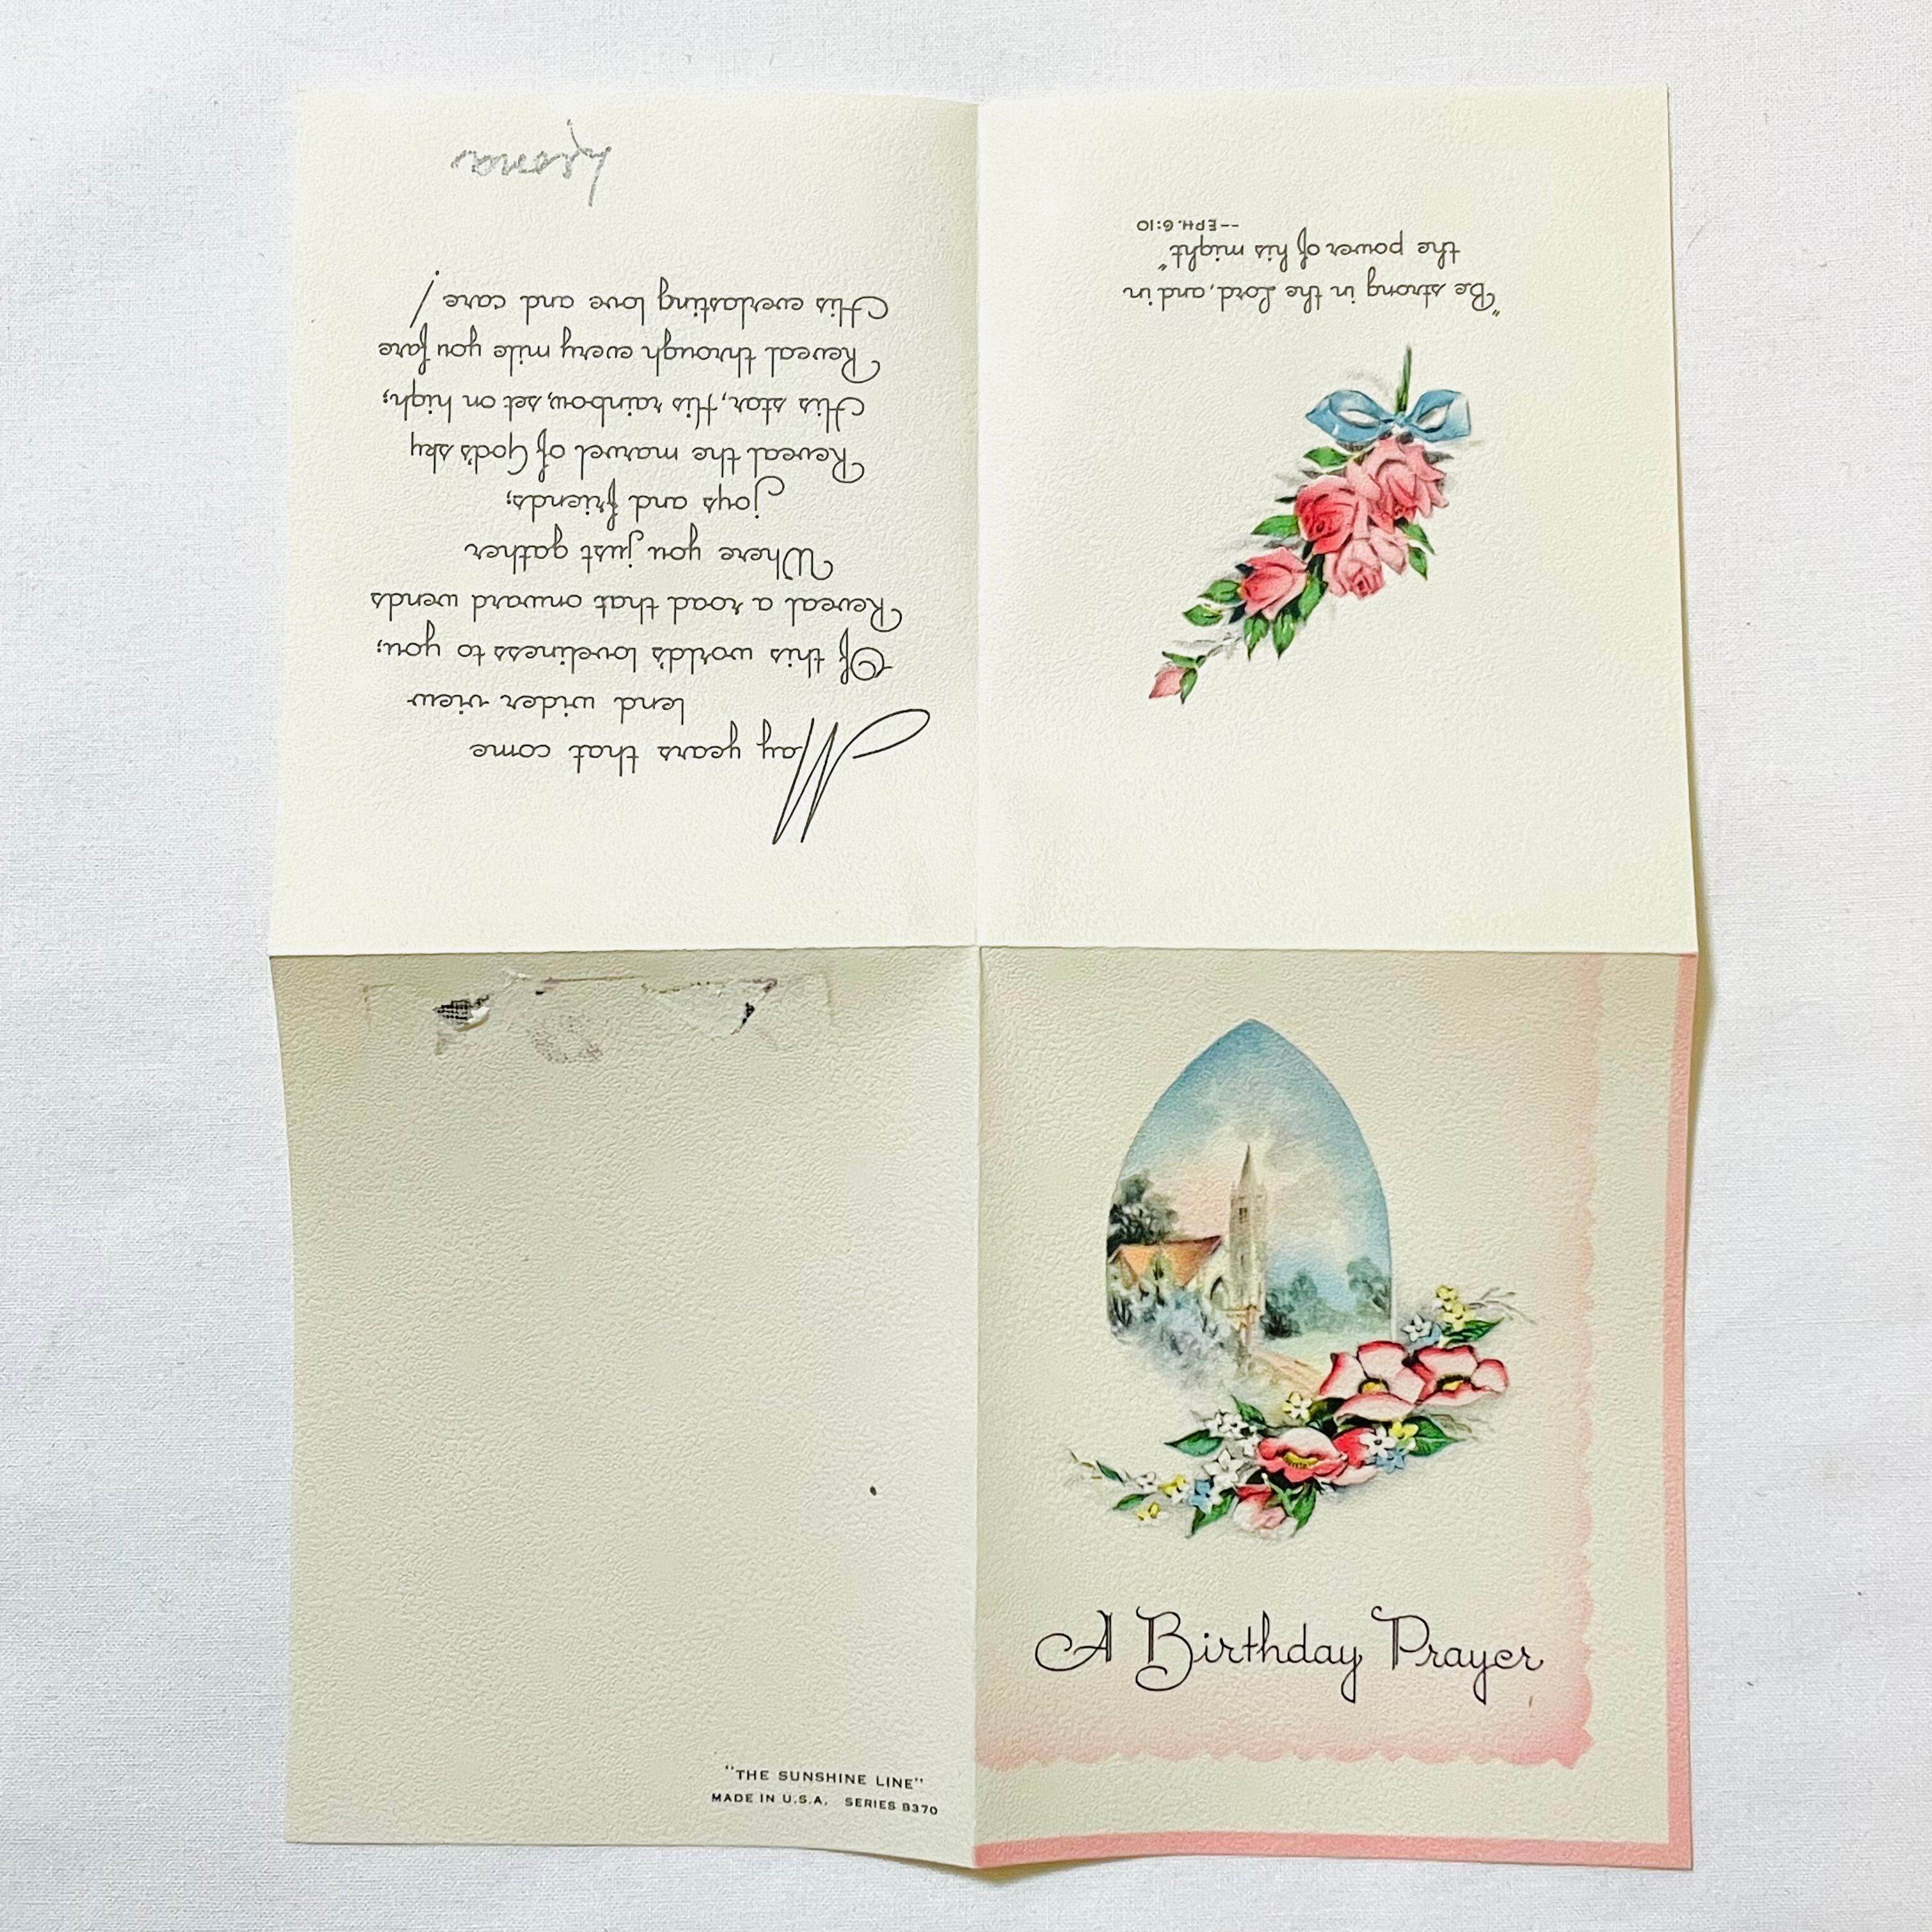 A Birthday Prayer
"Be strong in the Lord, and in
the power of his might"
--EPH. 6:10
May years that come
lend wider view
Of this world's loveliness to you;
Reveal a road that onward wends
Where you just gather
joys and friends;
Reveal the marvel of God's sky
His star, His rainbow, set on high;
Reveal through every mile you fare
His everlasting love and care!
"THE SUNSHINE LINE"
MADE IN U.S.A. SERIES B370